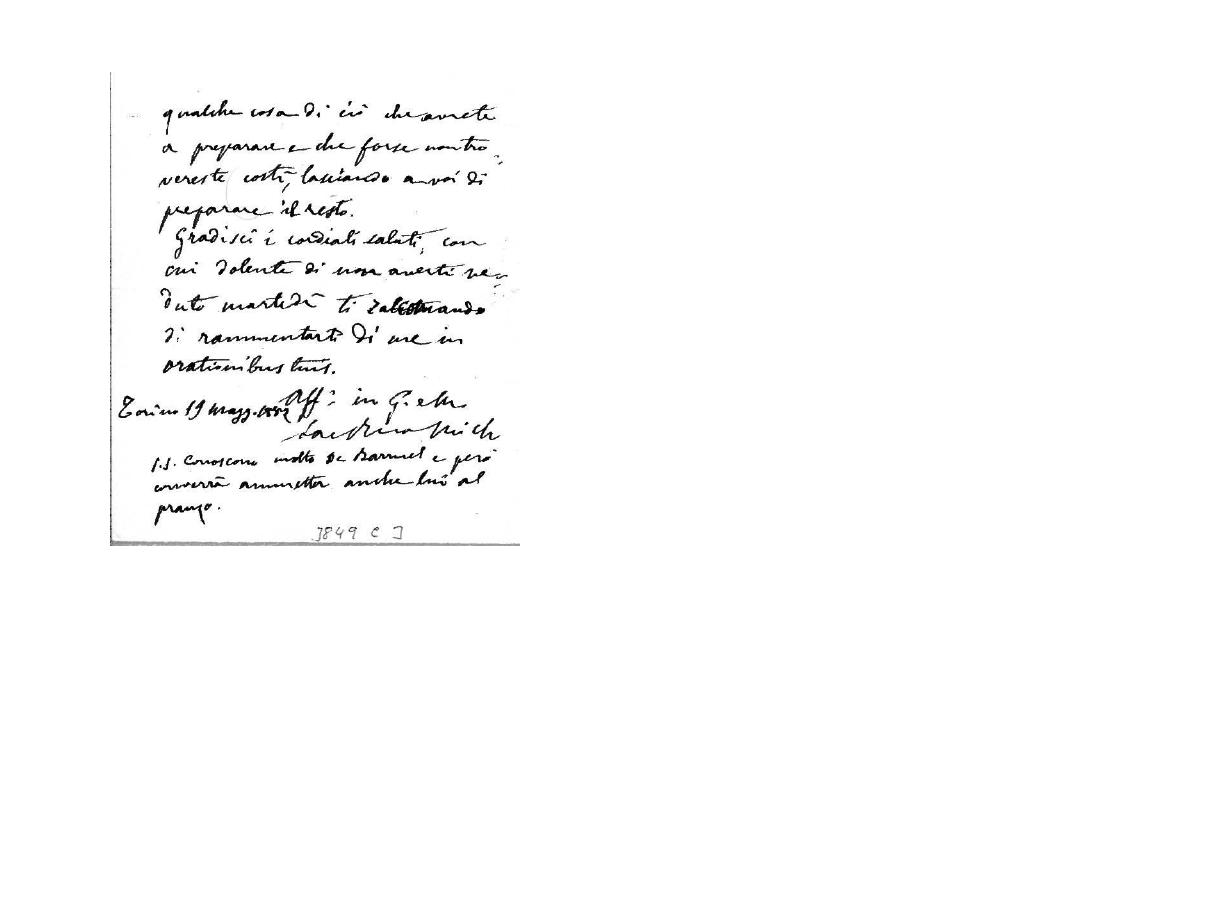 qualche cosa di ciò che avrete
a preparare e che forse non tro-
vereste costì, lasciando a voi di
preparare il resto.
Gradisci i cordiali saluti, con
cui dolente di non averti ve-
duto martedì ti
di rammentarti di me in
orationibus tuis.
Torino 19 Magg. 1882 Aff.º in G. e M.
Sac. Rua Mich
P.S. Conoscono molto De Barruel e però
converrà ammetter anche lui al
pranzo.
3849 C 3